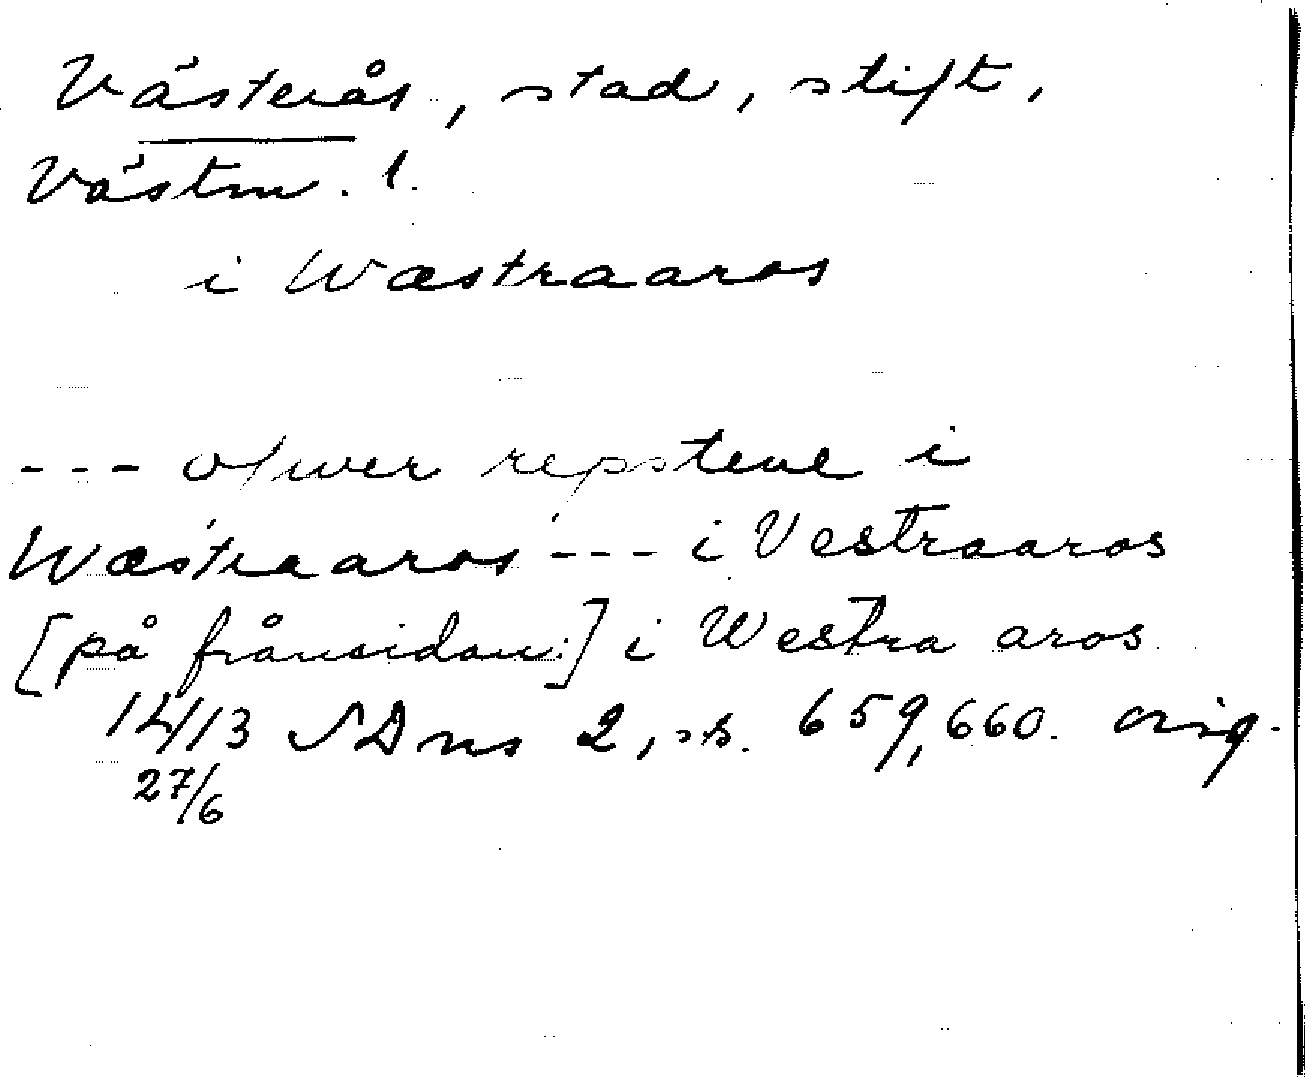 Västerås, stad, stift,
Västm. l.
i Wæstraaros
--- ofwer repstene i
Wæstraaros --- i Vestraaros
[på frånsidan:] i Westra aros
1413 SDns 2, ss. 659, 660. orig.
27/6